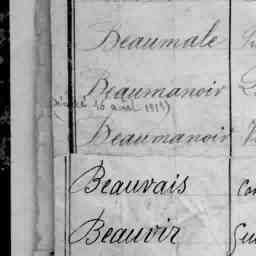 Beaumale
Beaumanoir
16 avril 1919)
Beaumanoir
Beauvais
Beauvir